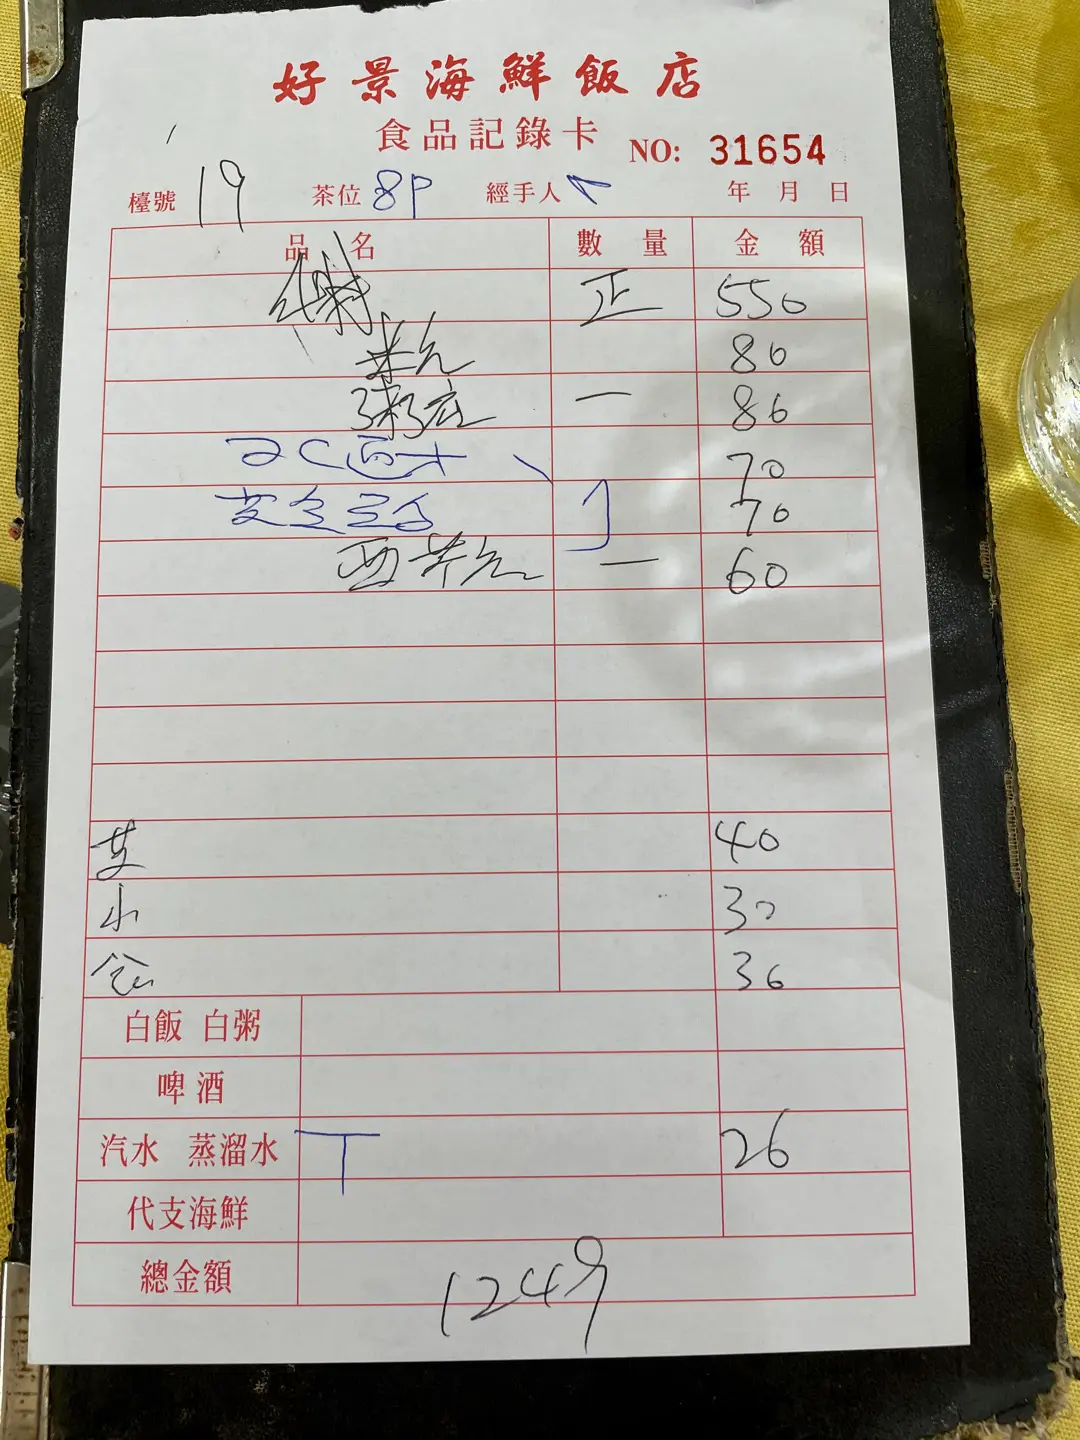 好景海鮮飯店
食品記錄卡 NO: 31654
檯號 19 茶位 8P 經手人 年 月 日
品 名 數 量 金 額
正 550
米 80
粥底 一 86
70
70
西 一 60
40
水 30
36
白飯 白粥
啤酒
汽水 蒸溜水 T 26
代支海鮮
總金額 1249